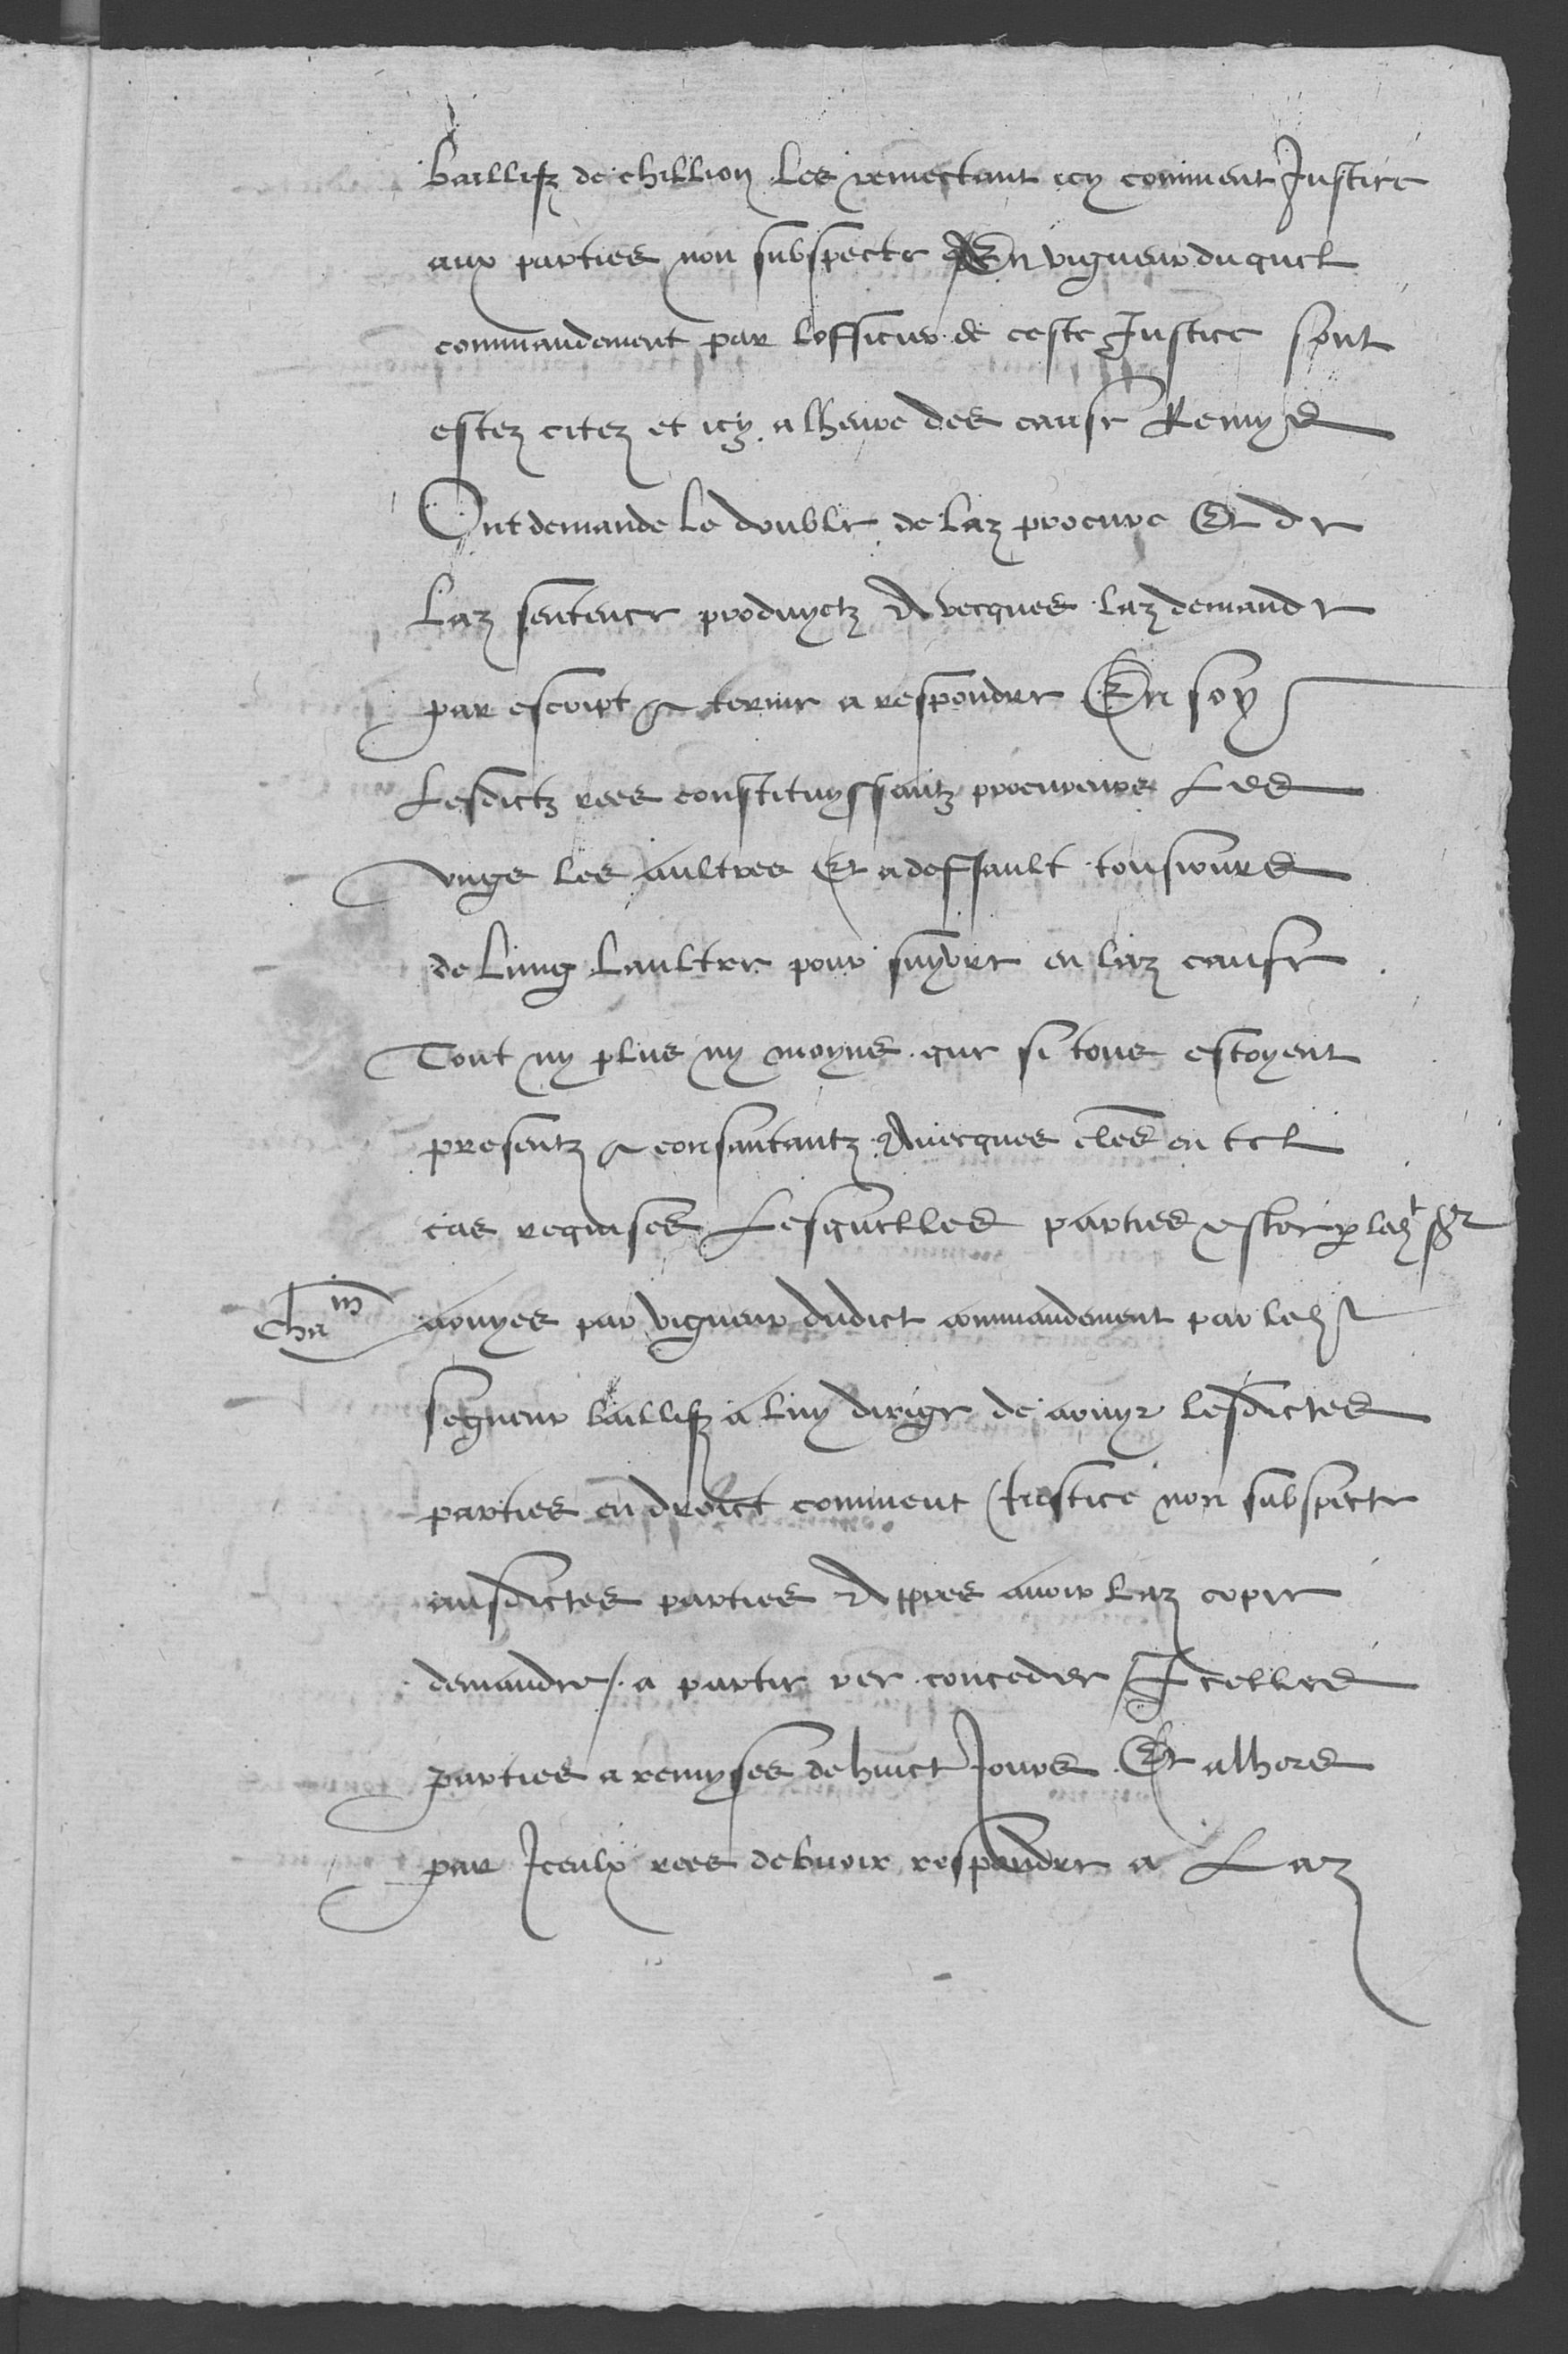 baillifz de chillion les remectant icy comment Justice
aux parties non subspecte En vigueur duquel
commandement par lofficier de ceste Justice sont
estez citez et icy a lheure des cause Remys
Ont demande le double de laz procure Et de
laz sentence produyctz Avecques laz demande
par escript & terme a respondre En soy
Lesdictz rees constituyssantz procureurs Les
ungs les aultres Et a deffault tousiours
de lung laultre pour suyvre en laz cause
Tout ny plus ny moyns que si tous estoyent
presentz & consantantz Avecques cles en tel
cas requises Lesquelles parties
aouyes par vigueur dudict commandement par led
segneur baillifz a luy dirige de aouyr lesdictes
parties en droict comment Justice non subspecte
ausdictes parties Appres avoir laz copie
demande / a partie ree conceder Icelles
parties a remyses de huict Jours Et alhors
par Iceulx rees debvoir respondre a Laz